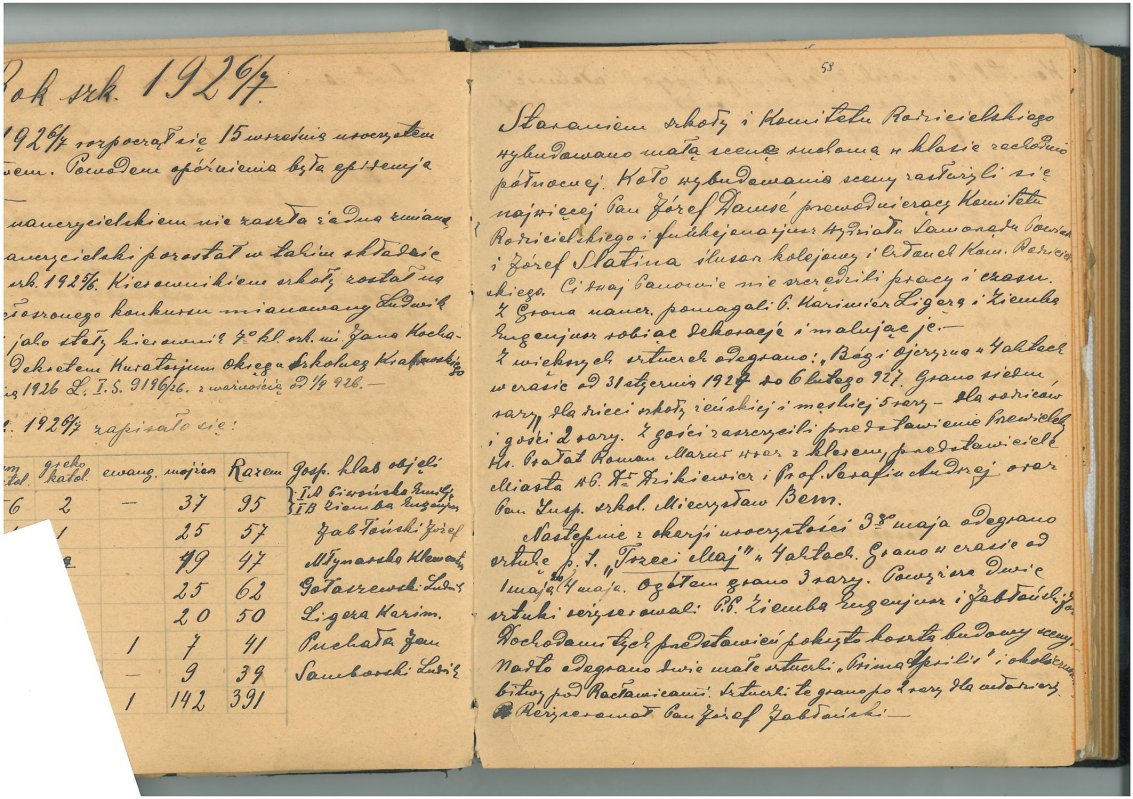 Rok szk. 1926/7.
1926/7 rozpoczął się 15 września uroczystem
Powodem opóźnienia była epidemja
nauczycielskiem nie zaszła żadna zmiana
pozostał w takim składzie
szk. 1925/6. Kierownikiem szkoły został na
konkursu mianowany Ludwik
jako stały kierownik 7o kl. szk. im Jana Kocha-
Dekretem Kuratorjum Okręgu Szkolneg Krakowskiego
1926 L. I.S. 9196/26. z ważnością od 1/9 926. —
1926/7 zapisało się:
greko katol. ewang. mojżesz. Razem Gosp. klas objęli
6 2 — 37 95 IA Piwońska Emilja
IB Ziemba Eugenjusz
1 25 57 Jabłoński Józef
2 19 47 Młynarska Klementyna
25 62 Gołaszewski Ludwik
20 50 Ligęza Kazim.
1 7 41 Puchała Jan
— 9 39 Samborski Ludwik
1 142 391
53
Staraniem szkoły i Komitetu Rodzicielskiego
wybudowano małą scenę ruchomą w klasie zachodnio
północnej. Koło wybudowania sceny zasłużyli się
najwięcej Pan Józef Damse przewodniczący Komitetu
Rodzicielskiego i funkcjonarjusz Wydziału Samorządu
i Józef Slatina ślusarz kolejowy i członek Kom. Rodziciel-
skiego. Ci dwaj Panowie nie szczędzili pracy i czasu.
Z Grona naucz. pomagali P. Kazimierz Ligęza i Ziemba
Eugenjusz robiąc dekoracje i malując je. —
Z większych sztuczek odegrano: "Bóg i Ojczyzna" w 4 aktach
w czasie od 31 stycznia 1927 do 6 lutego 927. Grano siedm
razy, dla dzieci szkoły żeńskiej i męskiej 5 razy — dla rodziców
i gości 2 razy. Z gości zaszczycili przedstawienie Przewielebny
Ks. Prałat Roman Mazur wraz z klerem, przedstawiciele
Miasta Dr Dzikiewicz i Prof. Serafin Andrzej oraz
Pan Insp. szkol. Mieczysław Bem.
Następnie z okazji uroczystości 3go maja odegrano
sztukę p. t. „Trzeci Maj" w 4 aktach. Grano w czasie od
1 maja do 4 maja. Ogółem grano 3 razy. Powyższe dwie
sztuki reżyserowali P.P. Ziemba Eugenjusz i Jabłoński
Dochodami tych przedstawień pokryto koszta budowy sceny.
Nadto odegrano dwie małe sztuczki „Prima Aprilis" i
bitwy pod Racławicami. Sztuczki te grano po 2 razy dla młodzieży.
Reżyserował Pan Józef Jabłoński —